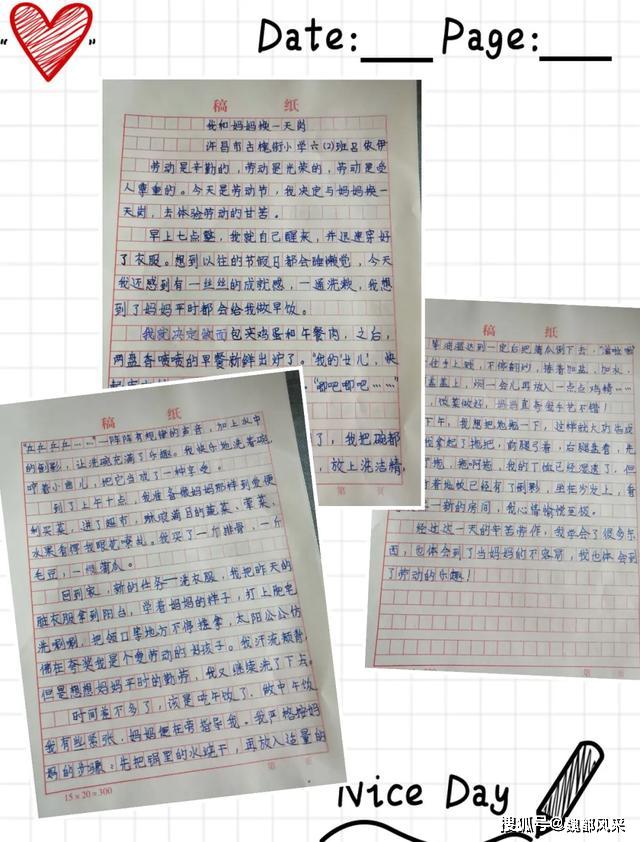 Date:___ Page:___
稿 纸
我和妈妈换一天岗
许昌市古槐街小学六(2)班吕依伊
劳动是辛勤的,劳动是光荣的,劳动是受
人尊重的。今天是劳动节,我决定与妈妈换一
天岗,去体验劳动的甘苦。
早上七点整,我就自己醒来,并迅速穿好
了衣服。想到以往的节假日都会睡懒觉,今天
我还感到有一丝丝的成就感,一边洗漱,我想
到了妈妈平时都会给我做早饭。
我就决定做面包夹鸡蛋和午餐肉,之后,
两盘香喷喷的早餐新鲜出炉了。“我的女儿,快
“嘟吧嘟吧……”
了,我把碗都
,放上洗洁精,
第 页
稿 纸
“乒乒乒乒……”一阵阵有规律的声音,加上水中
的倒影,让洗碗充满了乐趣。我快乐地洗着碗,
哼着小曲儿,把它当成了一种享受。
到了上午十点,我准备像妈妈那样到爱便
利买菜,进了超市,琳琅满目的蔬菜、荤菜、
水果看得我眼花缭乱。我买了一斤排骨,一斤
毛豆,一根蒲瓜。
回到家,新的任务——洗衣服,我把昨天的
脏衣服拿到阳台,学着妈妈的样子,打上肥皂
洗唰唰,把领口等地方不停揉拿,太阳公公仿
佛在夸奖我是个爱劳动的好孩子。我汗流颊背,
但是想想妈妈平时的勤劳,我又继续洗了下去。
时间差不多了,该是吃午饭了,做中午饭
我有些紧张,妈妈便在旁指导我。我严格按妈
妈的步骤。先把锅里的水烧干,再放入适量的
第 页
15×20=300
稿 纸
油温达到一定后把蒲瓜倒下去,“滋啦啦
不停翻炒,接着加盐、加水,
盖盖上,焖一会儿再放入一点点鸡精……
饭菜做好,妈妈直夸我手艺不错!
下午,我想把地拖一下,这样的大功告成
我拿起了拖把,前腿弓着,后腿直着,先
拖,拖啊拖,我的T恤已经湿透了,但
看地板已经有了倒影,坐在沙发上,看
一新的房间,我心情愉悦至极。
经过这一天的辛苦劳作,我学会了很多东
西,也体会到了当妈妈的不容易,我也体会到
了劳动的乐趣!
第
Nice Day
搜狐号@魏都风采